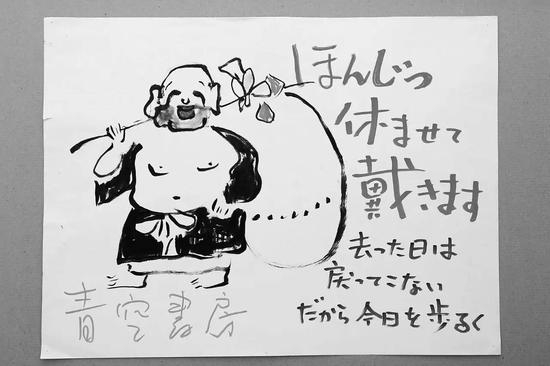 ほんじつ
休ませて
戴きます
去った日は
戻ってこない
だから今日を歩るく
青空書房